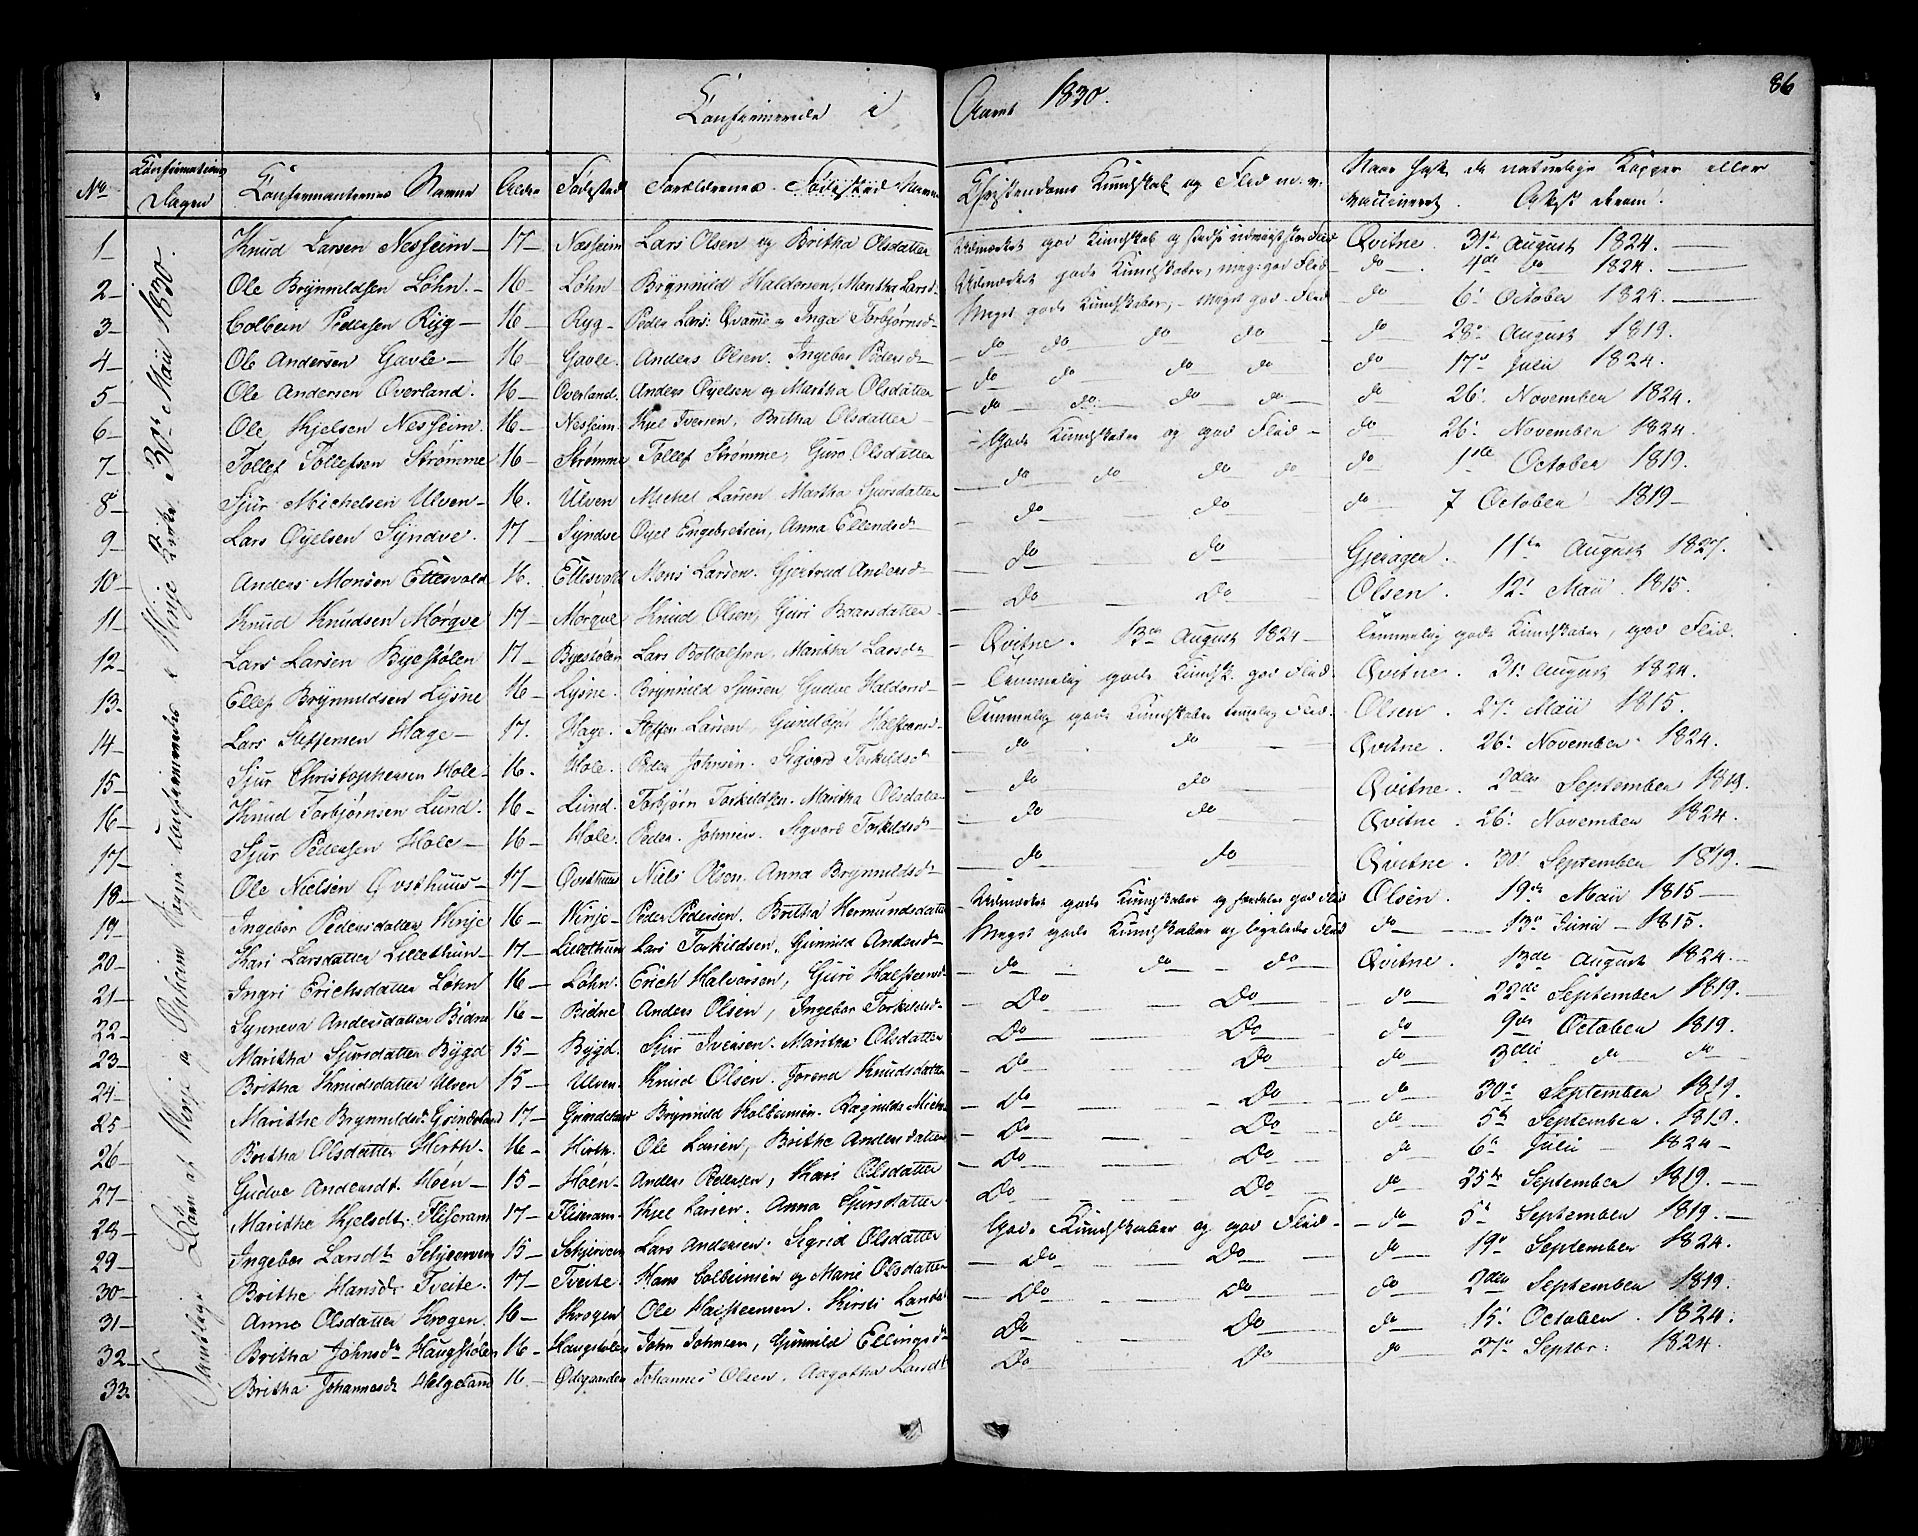 Confirmerede i Aaret 1830. 86
No Confirmations Dagen Confirmanternes Navne Alder Fødested Forældrenes Fødested Navne Christendoms Kundskab og Flid m. v. Naar havt de naturlige Kopper eller
vaccineret. Attest derom.
Samtlige Børn af Winje og Opheim Sogne Confirmerede i Winje Kirke 30te Maii 1830.
1 Knud Larsen Nesheim 17 Næsheim Lars Olsen og Britha Olsdatter Udmærket god Kundskab og Flid Qvitne 31te August 1824.
2 Ole Brynnildsen Løhn 16 Løhn Brynnild Haldorsen, Martha Larsd Udmærket gode Kundskaber, meg: god Flid do 4de do 1824.
3 Colbein Pedersen Ryg 16 Ryg Peder Lars: Qvamme og Inga Torbjørnsd Meget gode Kundskaber, meget god Flid do 6 October 1824.
4 Ole Andersen Gavle 16 Gavle. Anders Olsen. Ingebor Pedersd do do do do do 28 August 1819.
5 Ole Andersen Øverland. 16 Øverland. Anders Oyelsen og Martha Olsdatter do do do do do 17 Julii 1824.
6 Ole Kjelsen Nesheim. 16 Nesheim. Kjel Iversen, Britha Olsdatter do do do do do 26 November 1824.
7 Tollef Tollefsen Strømme 16 Strømme Tollef Strømme, Guro Olsdatter Gode Kundskaber og god Flid do 26 November 1824.
8 Sjur Michelsen Ulven 16. Ulven Michel Larsen Martha Sjursdatter do do do do do 1ste October 1819.
9 Lars Oyelsen Syndve. 17 Syndve Oyel Engebretsen, Anna Ellendsd do do do 7 October 1819
10 Anders Monsen Ettesvold 16. Ettesvold Mons Larsen. Gjertrud Andersd do do Gjerager. 11te August 1827.
11 Knud Knudsen Mørqve 17 Mørqve Knud Olsen, Guri Baarsdatter Do Do Olsen. 12 Maii 1815.
12 Lars Larsen Byestølen 17 Byestølen Lars Bottolfsen, Maritha Larsda Qvitne. 13de August 1824 Temmelig gode Kundskaber, god Flid.
13 Ellef Brynnildsen Lysne 16 Lysne. Brynnild Sjursen, Gudve Haldorsd Temmelig gode Kundsk. god Flid. Qvitne. 31 August 1824.
14 Lars Steffensen Hage 17. Hage. Steffen Larsen, Temmelig gode Kundskaber temmelig Flid. Olsen. 27 Maii 1815.
15 Sjur Christophersen Hole 16. Hole. Peder Johnsen. Sigvord Torkildsd do do Qvitne. 26 November 1824.
16 Knud Torbjørnsen Lund. 16 Lund. Torbjørn Torkildsen. Maritha Olsdatter do do Qvitne. 2den September 1819.
17 Sjur Pedersen Hole 16 Hole Peder Johnsen. Sigvord Torkildsd do do Qvitne. 26 November 1824.
18 Ole Nielsen Qvethuus 17 Qvethuus Niels Olsen. Anna Brynnildsd do do Qvitne. 30 September 1819.
19 Ingebor Pedersdatter Winje 16 Winje Peder Pedersen. Britha Hermundsdatter Udmærket gode Kundskaber og god Flid Olsen. 19de Maii 1815
20 Kari Larsdatter Lillethun 17 Lillethuun Lars Torkildsen. Gunnild Andersd Meget gode Kundskaber og ligeledes Flid do 13 Junii 1815.
21 Ingri Erichsdatter Løhn 16 Løhn. Erich Halvorsen, Guri Halsteensd do do do Qvitne. 13de August 1824.
22 Synneva Andersdatter Bidne 16 Bidne Anders Olsen, Ingebor Torkildsd Do Do do 22de September 1819.
23 Maritha Sjursdatter Bygd 15 Bygd. Sjur Iversen. Maritha Olsdatter Do Do do 9de October 1819.
24 Britha Knudsdatter Ulven 15 Ulven. Knud Olsen. Jorend Knudsdatter Do Do do 3die do do
25 Marithe Brynnildsd Grindeland 17 Grindeland Brynnild Ragnilda Mich Do Do do 30 September 1819.
26 Britha Olsdatter Hirth. 16 Hirth. Ole Larsen, Brithe Andersdatter Do Do do 5te September. 1819.
27 Gudve Andersdt. Høen 15 Høen. Anders Pedersen, Kari Olsdatter Do Do do 6te Julii 1824
28 Marithe Kjelsdt. Fliseram 17 Fliseram. Kjel Larsen. Anna Sjursdatter. Do Do do 25de September 1819.
29 Ingebor Larsdt Schjerven 15 Schjerven Lars Andersen. Sigrid Olsdatter Gode Kundskaber og god Flid do 5te September 1819.
30 Brithe Hansdr Tveite. 17 Tveite. Hans Colbeinsen og Marie Olsdatter Do Do do 19 September 1824.
31 Anne Olsdatter Krogen. 16 Krogen Ole Halsteensen. Kirsti Larsd Do Do do 2den September 1819.
32 Britha Johnsda Haugstølen 16 Haugstølen John Johnsen, Gunnild Ellingsd Do Do do 15 October. 1824.
33 Britha Johannesd Helgeland 16. Ødegaarden Johannes Olsen. Aagotha Larsdt Do Do do 27 Septbr: 1824.